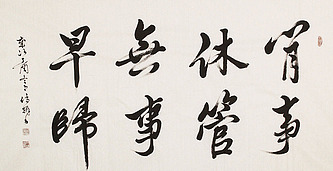 肖事
休管
無事
早歸